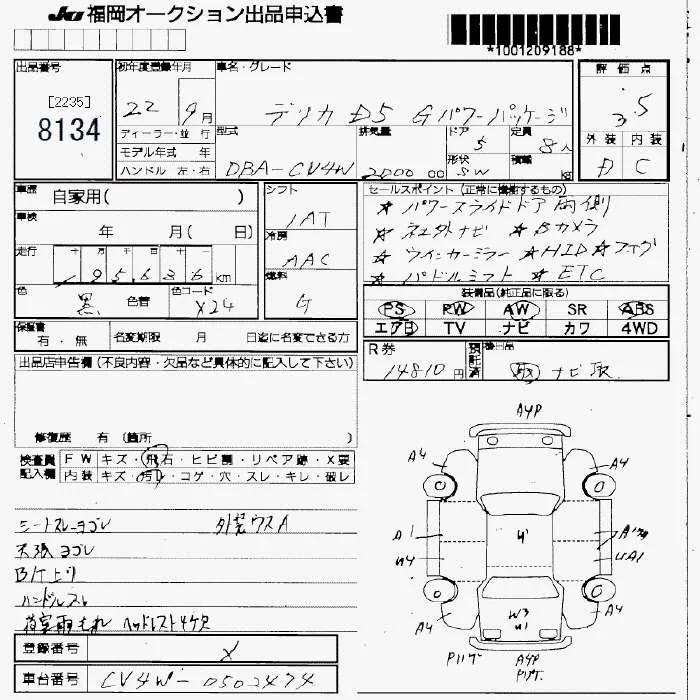 JU 福岡オークション出品申込書
*1001209188*
出品番号
[2235]
8134
初年度登録年月
22 9月
車名・グレード
デリカ D5 Gパワーパッケージ
評価点
3.5
外装 内装
D C
ディーラー・並行
モデル年式 年
ハンドル 左・右
型式
DBA-CV4W
排気量
2000 cc
ドア
5
形状
SW
定員
8人
積載
kg
車歴
自家用( )
車検
年 月( 日)
走行
125,636 km
色
黒 色替
色コード
X24
シフト
IAT
冷房
AAC
燃料
G
セールスポイント (正常に機能するもの)
☆ パワースライドドア 両側
☆ 社外ナビ ☆ Bカメラ
☆ ウインカーミラー ☆HID ☆フォグ
☆ パドルシフト ☆ ETC
装備品(純正品に限る)
PS PW AW SR ABS
エアB TV ナビ カワ 4WD
保証書
有・無
名変期限 月 日迄に名変できる方
R券
14810円
預託済
後日品
取 ナビ取
出品店申告欄 (不良内容・欠品など具体的に記入して下さい)
修復歴 有 (箇所 )
検査員記入欄
FW キズ・飛石・ヒビ割・リペア跡・X要
内装 キズ・汚レ・コゲ・穴・スレ・キレ・破レ
シートスレ・ヨゴレ 外装ウスA
天張ヨゴレ
ハンドルスレ
荷室雨もれ ヘッドレスト4ケ欠
登録番号
X
車台番号
CV4W-0502474
A4P
A4 A4
A1
U4
U1
UA1
W3
U1
A4 A4
A4P